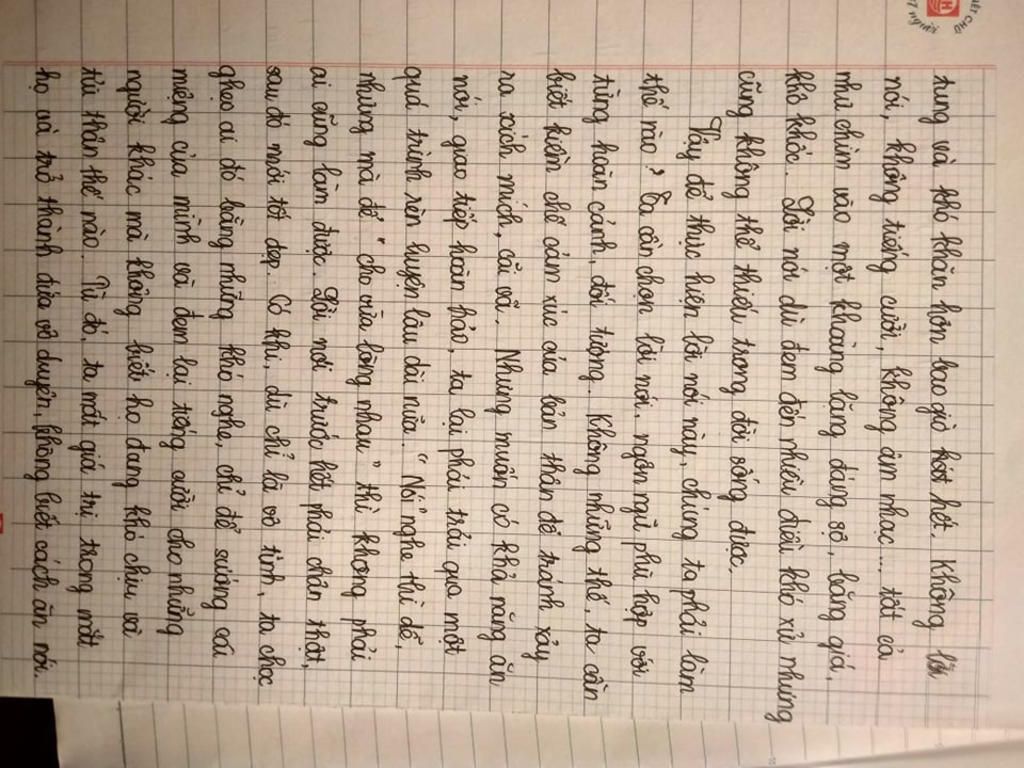 VIỆT CHỮ
người
tung và khó khăn hơn bao giờ hết. Không lời
nói, không tiếng cười, không âm nhạc... tất cả
như chìm vào một khoảng lặng đáng sợ, băng giá,
khô khốc. Lời nói dù đem đến nhiều điều khó xử nhưng
cũng không thể thiếu trong đời sống được.
Vậy để thực hiện lời nói này, chúng ta phải làm
thế nào? Ta cần chọn lời nói, ngôn ngữ phù hợp với
từng hoàn cảnh, đối tượng. Không những thế, ta cần
biết kiềm chế cảm xúc của bản thân để tránh xảy
ra xích mích, cãi vã. Nhưng muốn có khả năng ăn
nói, giao tiếp hoàn hảo, ta lại phải trải qua một
quá trình rèn luyện lâu dài nữa. "Nói" nghe thì dễ,
nhưng mà để "cho vừa lòng nhau" thì không phải
ai cũng làm được. Lời nói trước hết phải chân thật,
sau đó mới tốt đẹp. Có khi, dù chỉ là vô tình, ta chọc
ghẹo ai đó bằng những khó nghe, chỉ để sướng cái
miệng của mình và đem lại tiếng cười cho những
người khác mà không biết họ đang khó chịu và
tủi thân thế nào. Từ đó, ta mất giá trị trong mắt
họ và trở thành đứa vô duyên, không biết cách ăn nói.